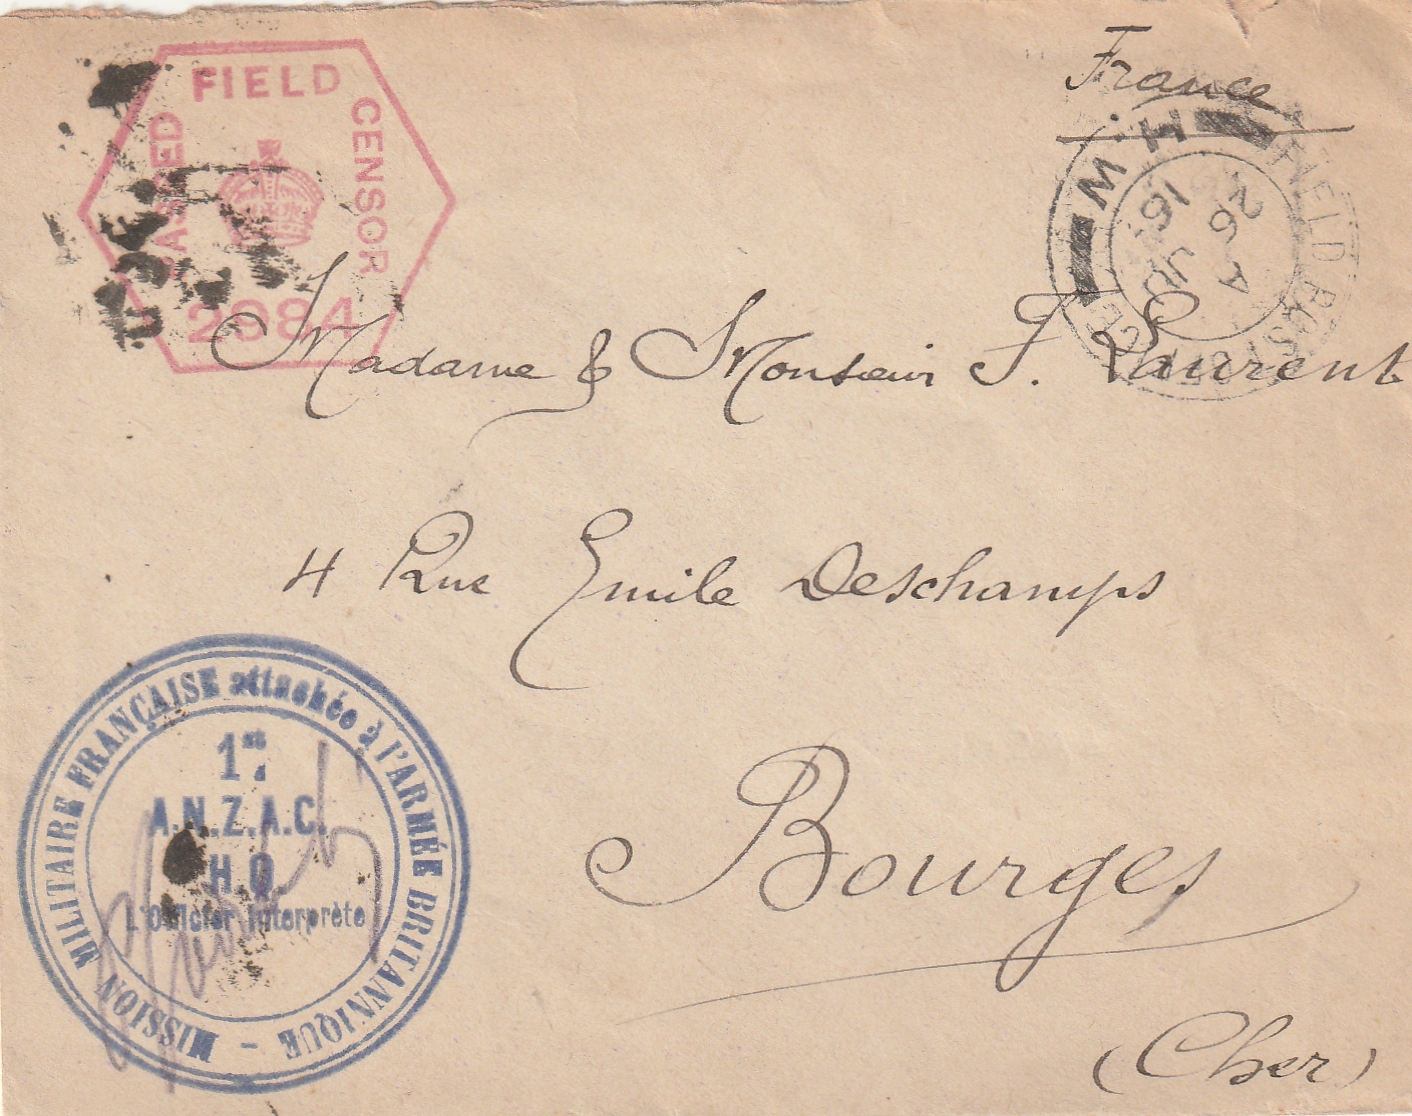 France
PASSED FIELD CENSOR
2984
FIELD POST OFFICE
H.W
A
26 JU
16
Madame & Monsieur J. Laurent
4 Rue Emile Deschamps
Bourges
(Cher)
MISSION MILITAIRE FRANÇAISE attachée à l'ARMÉE BRITANNIQUE -
1er
A.N.Z.A.C.
H Q
L'Officier Interprète